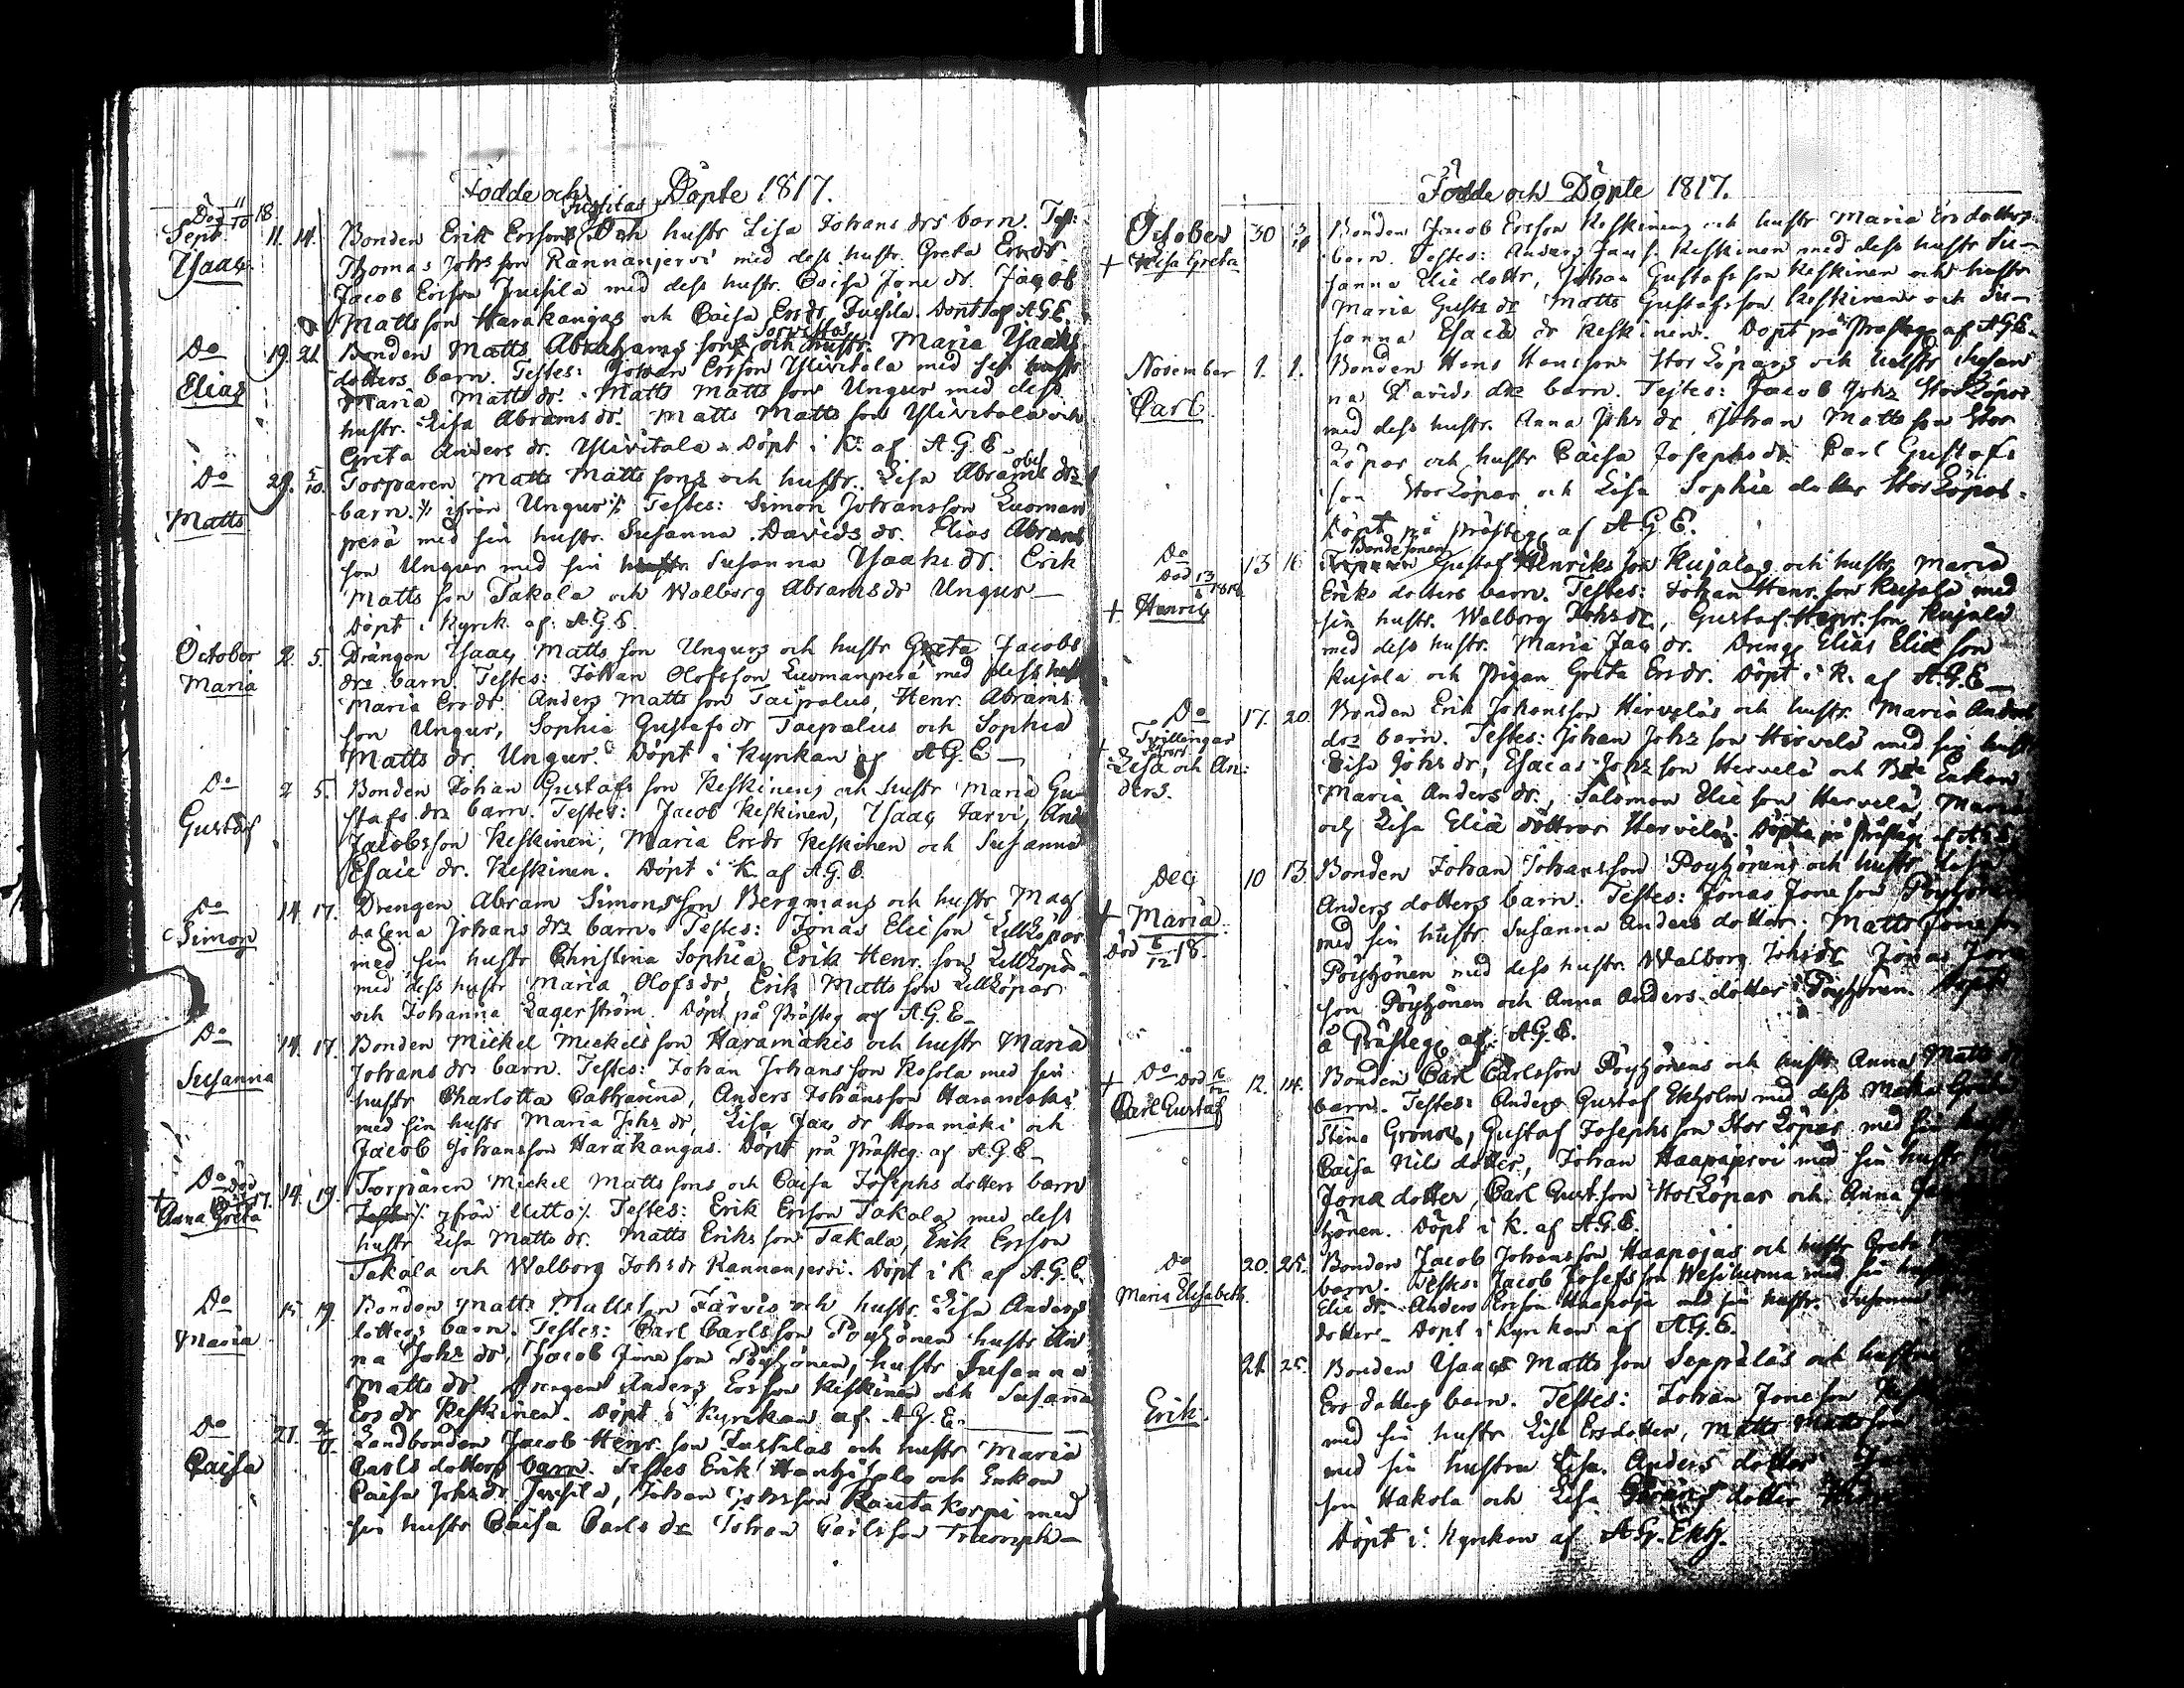 Födde och Döpte 1817.
Död 11/10 18.
Jussilas
Sept. 11. 14. Bonden Erik Ersons och hustr Lisa Johans drs barn. Test:
Ysaac Thomas Johs son Kannanjervi med dess hustr. Greta Ersdr.
Jacob Erson Jussila med dess hustr. Caisa Jone dr. Jacob
Matts son Harakangas och Caisa Ersdr Jussila. Döpt af A.G.E.
Jervistas
Do 19. 21. Bonden Matts Abrahams sons och hustr. Maria Ysaaks
Elias dotters barn. Testes: Johan Erson Ylivitala med sin hustr
Maria Matts dr. Matts Matts son Ungur med dess
hustr. Lisa Abrams dr. Matts Matts son Ylivitala och
Greta Anders dr. Ylivitala. Döpt i K. af A.G.E.
Do 29. 5/10. Torparen Matts Matts sons och hustr. Lisa Abrams drs
Matts barn. ifrån Ungur Testes: Simon Johansson Luoman
perä med sin hustr. Susanna Davids dr. Elias Abrams
son Ungur med sin hustr Susanna Ysaaks dr. Erik
Matts son Takala och Walborg Abrams dr Ungur
Döpt i Kyrk. af A.G.E.
October 2. 5. Drängen Ysaac Matts son Ungurs och hustr Greta Jacobs
Maria drs barn. Testes: Johan Olofsson Luomanperä med dess hustr
Maria Ers dr. Anders Matts son Taipalus, Henr. Abrams
son Ungur, Sophia Gustafs dr Taipalus och Sophia
Matts dr. Ungur. Döpt i Kyrkan af A.G.E
Do 2 5. Bonden Johan Gustafs son Keskinens och hustr Maria Gu-
Gustaf stafs drs barn. Testes: Jacob Keskinen, Ysaac Jarvi, And
Jacobsson Keskinen, Maria Ersdr Keskinen och Susanna
Esaie dr. Keskinen. Döpt i K. af A.G.E.
Do 14. 17. Drengen Abram Simonsson Bergmans och hustr Mag
Simon dalena Johans drs barn. Testes: Jonas Elie son Lillköpar
med sin hustr Christina Sophia, Erik Henr. son Lillköpar
med dess hustr Maria Olofs dr, Erik Matts son Lillköpar
och Johanna Lagerström. Döpt på Prästeg af A.G.E
Do 14. 17. Bonden Mickel Mickels son Haramäkis och hustr Maria
Susanna Johans drs barn. Testes: Johan Johans son Kosola med sin
hustr Charlotta Catharina, Anders Johansson Haramäki
med sin hustr Maria Johs dr, Lisa Jac dr Haramäki och
Jacob Johansson Harakangas. Döpt på Prästeg. af A.G.E
Do död
+ Anna Greta 14. 19. Torparen Mickel Matts sons och Caisa Josephs dotters barn
ifrån Uitto Testes: Erik Erson Takala med dess
hustr Lisa Matts dr. Matts Eriks son Takala, Erik Erson
Takala och Walborg Johs dr Kannanjervi. Döpt i K af A.G.E.
Do 15. 19. Bonden Matts Matts son Järvis och hustr. Lisa Anders
Maria dotters barn. Testes: Carl Carls son Pöyhönen hustr An
na Johs dr, Jacob Jone son Pöyhönen, hustr Susanna
Matts dr. Drengen Anders Erson Keskinen och Susanna
Ers dr Keskinen. Döpt i Kyrkan af. A.G.E.
Do 27. Landbonden Jacob Henr. son Jussilas och hustr Maria
Caisa Carls dotters barn. Testes Erik och Enkan
Caisa Johs dr Jussila, Johan Johsson Rautakorpi med
sin hustr Caisa Carls dr Johan Carlsson Triumph
Födde och Döpte 1817.
October 30 Bonden Jacob Ersson Keskinens och hustr Maria Ersdotters
+ Caisa Greta barn. Testes: Anders Jac s. Keskinen med dess hustr Su-
sanna Elie dottr, Johan Gustafs son Keskinen och hustr
Maria Gusts dr Matts Gustafsson Keskinen och Su-
sanna Esaiæ dr Keskinen. Döpt på Prästeg. af A.G.E.
November 1. 1. Bonden Hans Hansson Storköpars och hustr Susan
Carl na Davids drs barn. Testes: Jacob Johs Storköpar
med dess hustr. Anna Johs dr Johan Matts son Stor
köpar och hustr Caisa Josephs dr. Carl Gustafs
son Storköpar och Lisa Sophie dotter Storköpar.
Döpt på Prästeg af A.G.E.
Bondesonen
Do 13 16 Gustaf Henriks son Kujalas och hustr Maria
Död 13/6 1818
+ Henric Eriks dotters barn. Testes: Johan Henr. son Kujala med
sin hustr. Walborg Johs dr, Gustaf Henr. son Kujala
med dess hustr. Maria Jac dr. Dreng Elias Elie son
Kujala och Pigan Greta Ersdr. Döpt i K. af A.G.E
Do 17. 20. Bonden Erik Johansson Herveläs och hustr. Maria Anders
Tvillingar drs barn. Testes: Johan Johs son Hervelä med sin hustr
+ Lisa och An: Caisa Johs dr, Esaias Johs son Hervelä och Enkan
ders. Maria Anders dr., Salomon Elie son Hervelä, Maria
och Lisa Eliæ döttrar Hervelä. Döpte på Prästeg af A.G.E.
Dec 10 13 Bonden Johan Johansson Pöyhönens och hustr Lisa
+ Maria. Anders dotters barn. Testes: Jonas Jone son Pöyhönen
Död 6/12 18. med sin hustr Susanna Anders dotter, Matts Jone son
Pöyhönen med dess hustr. Walborg Johs dr Jonas Jone
son Pöyhönen och Anna Anders dotter Pöyhönen. Döpt
å Prästeg af A.G.E.
+ Do Död 12. 14. Bonden Carl Carlsson Pöyhönens och hustr Anna Matts dr
Carl Gustaf barn. Testes: Anders Gustaf Ekholm med dess Maka Greta
Stina Gronow, Gustaf Josephs son Storköpar med sin hustr
Caisa Nils dotter, Johan Haapajervi med sin hustr
Jona dotter, Carl Gust. son Storköpar och Anna
hönen. Döpt i K. af A.G.E.
Do 20. 25. Bonden Jacob Johansson Haapojas och hustr Greta
Maria Elisabeth. barn. Testes: Jacob Josefs son Wesiluoma med sin hustr
Elie dr. Anders Ersson Haapoja med sin hustr. Susanna
dotter. Döpt i Kyrkan af A.G.E.
21. 25. Bonden Ysaac Matts son Seppäläs och hustru
Erik. Ers dotters barn. Testes: Johan Jone son
med sin hustr Lisa Ersdotter, Matts Matts son
med sin hustru Lisa Anders dotter
son Hakola och Lisa dotter
Döpt i Kyrkan af A.G. Ekh.